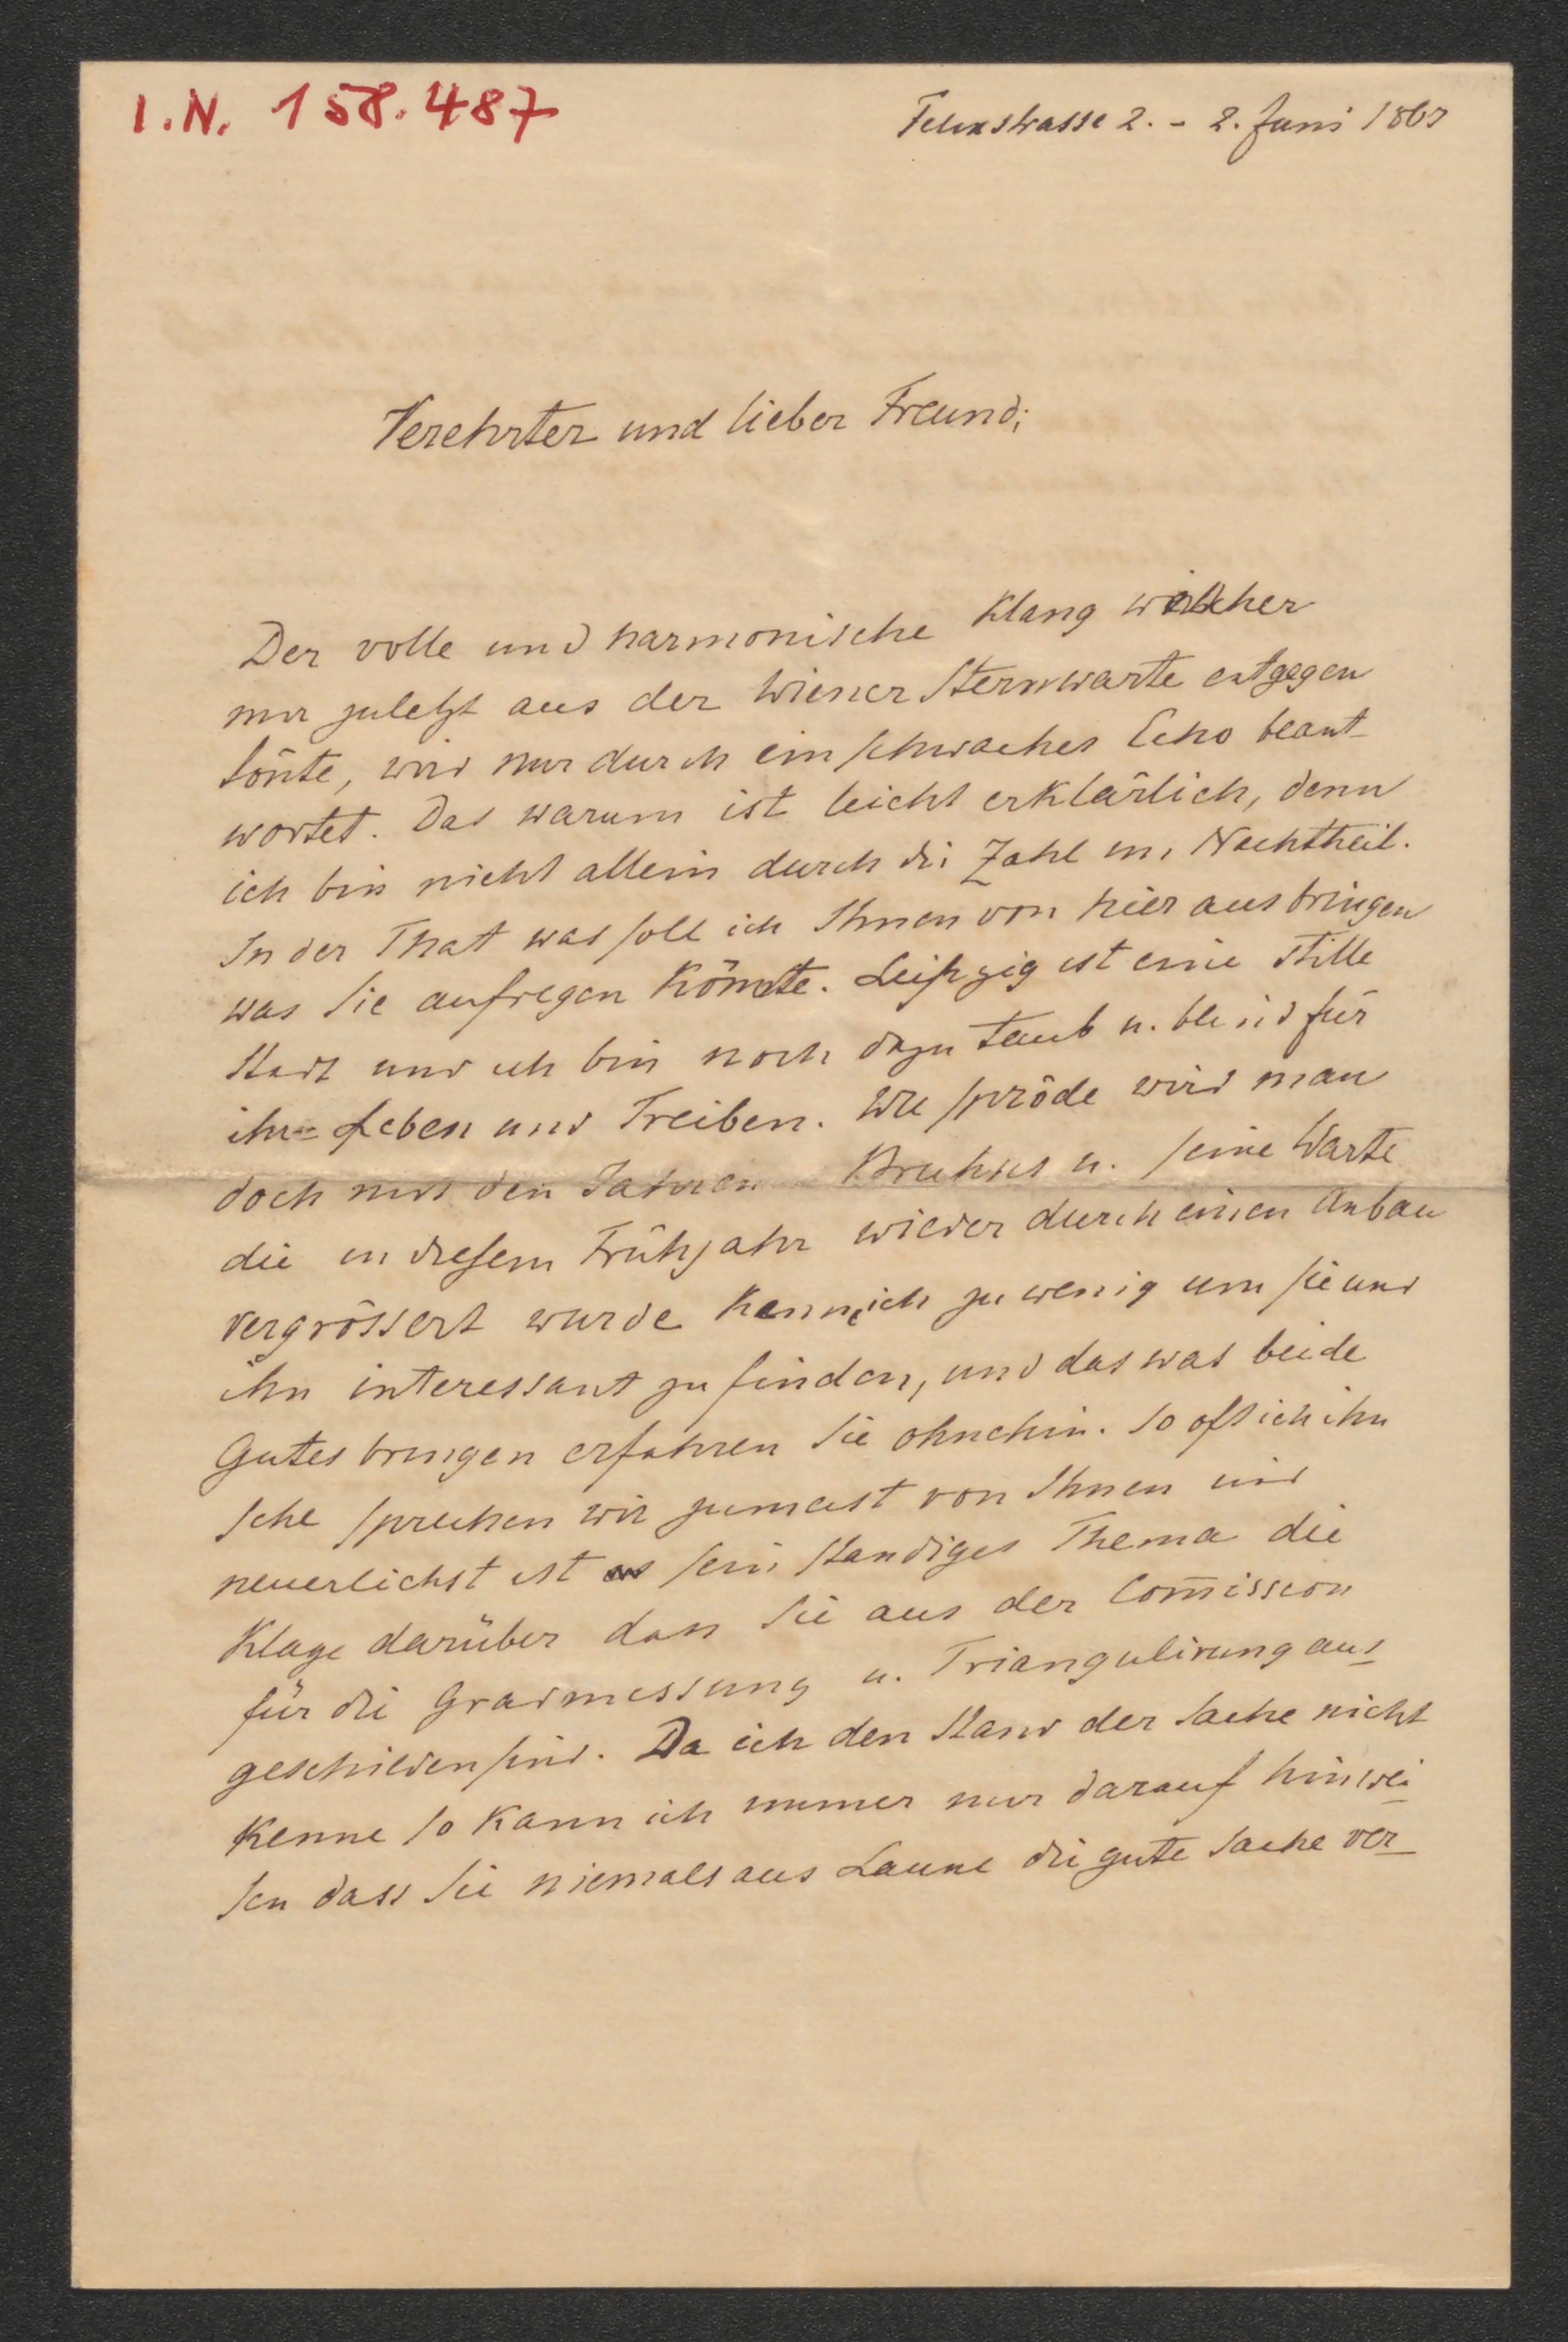 I.N. 158.487
Felixstrasse 2. - 2. Juni 1867
Verehrter und lieber Freund;
Der volle und harmonische Klang welcher
mir zuletzt aus der Wiener Sternwarte entgegen
tönte, wird nur durch ein schwaches Echo beant-
wortet. Das warum ist leicht erklärlich, denn
ich bin nicht allein durch die Zahl im Nachtheil.
In der That was soll ich Ihnen von hier aus bringen
was Sie aufregen könnte. Leipzig ist eine stille
Stadt und ich bin noch dazu taub u. blind für
ihr Leben und Treiben. Wie spröde wird man
doch mit den Jahren Bruhns u. seine Warte
die in diesem Frühjahr wieder durch einen Anbau
vergrössert wurde kenn ich zu wenig um sie und
ihn interessant zu finden, und das was beide
Gutes bringen erfahren Sie ohnehin. So oft ich ihn
sehe sprechen wir zumeist von Ihnen und
neuerlichst ist sein standiges Thema die
Klage darüber dass Sie aus der Com̅ission
für die Gradmessung u. Triangulirung aus-
geschieden sind. Da ich den Stand der Sache nicht
kenne so kann ich immer nur darauf hinwei-
sen dass Sie niemals aus Laune die gute Sache ver-